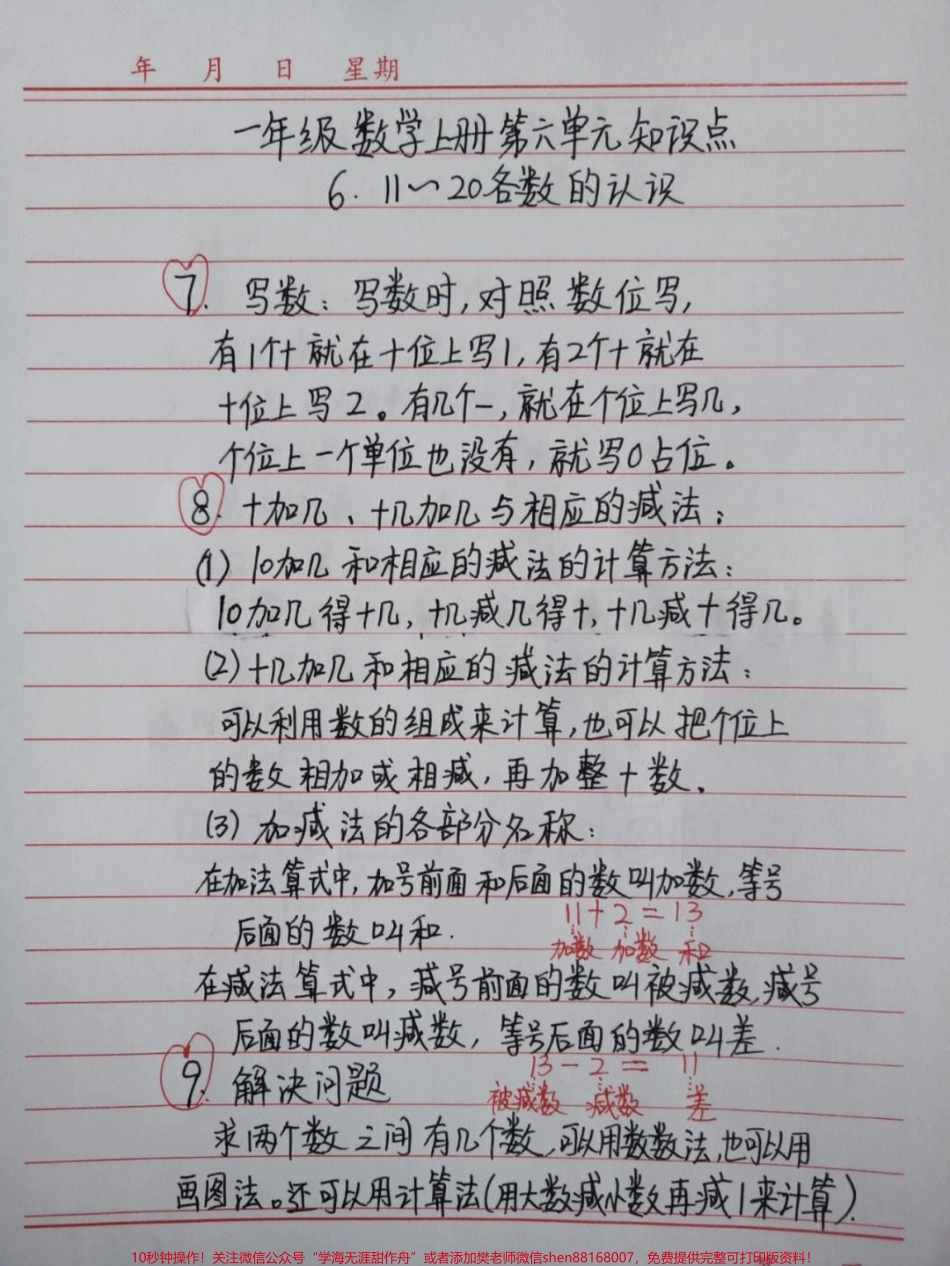 年 月 日 星期
一年级数学上册第六单元知识点
6. 11～20各数的认识
7. 写数：写数时，对照数位写，
有1个十就在十位上写1，有2个十就在
十位上写2。有几个一，就在个位上写几，
个位上一个单位也没有，就写0占位。
8. 十加几、十几加几与相应的减法：
(1) 10加几和相应的减法的计算方法：
10加几得十几，十几减几得十，十几减十得几。
(2) 十几加几和相应的减法的计算方法：
可以利用数的组成来计算，也可以把个位上
的数相加或相减，再加整十数。
(3) 加减法的各部分名称：
在加法算式中，加号前面和后面的数叫加数，等号
后面的数叫和.
11+2=13
加数 加数 和
在减法算式中，减号前面的数叫被减数，减号
后面的数叫减数，等号后面的数叫差.
13-2=11
被减数 减数 差
9. 解决问题
求两个数之间有几个数，可以用数数法，也可以用
画图法。还可以用计算法(用大数减小数再减1来计算).
10秒钟操作！关注微信公众号“学海无涯甜作舟”或者添加樊老师微信shen88168007，免费提供完整可打印版资料！